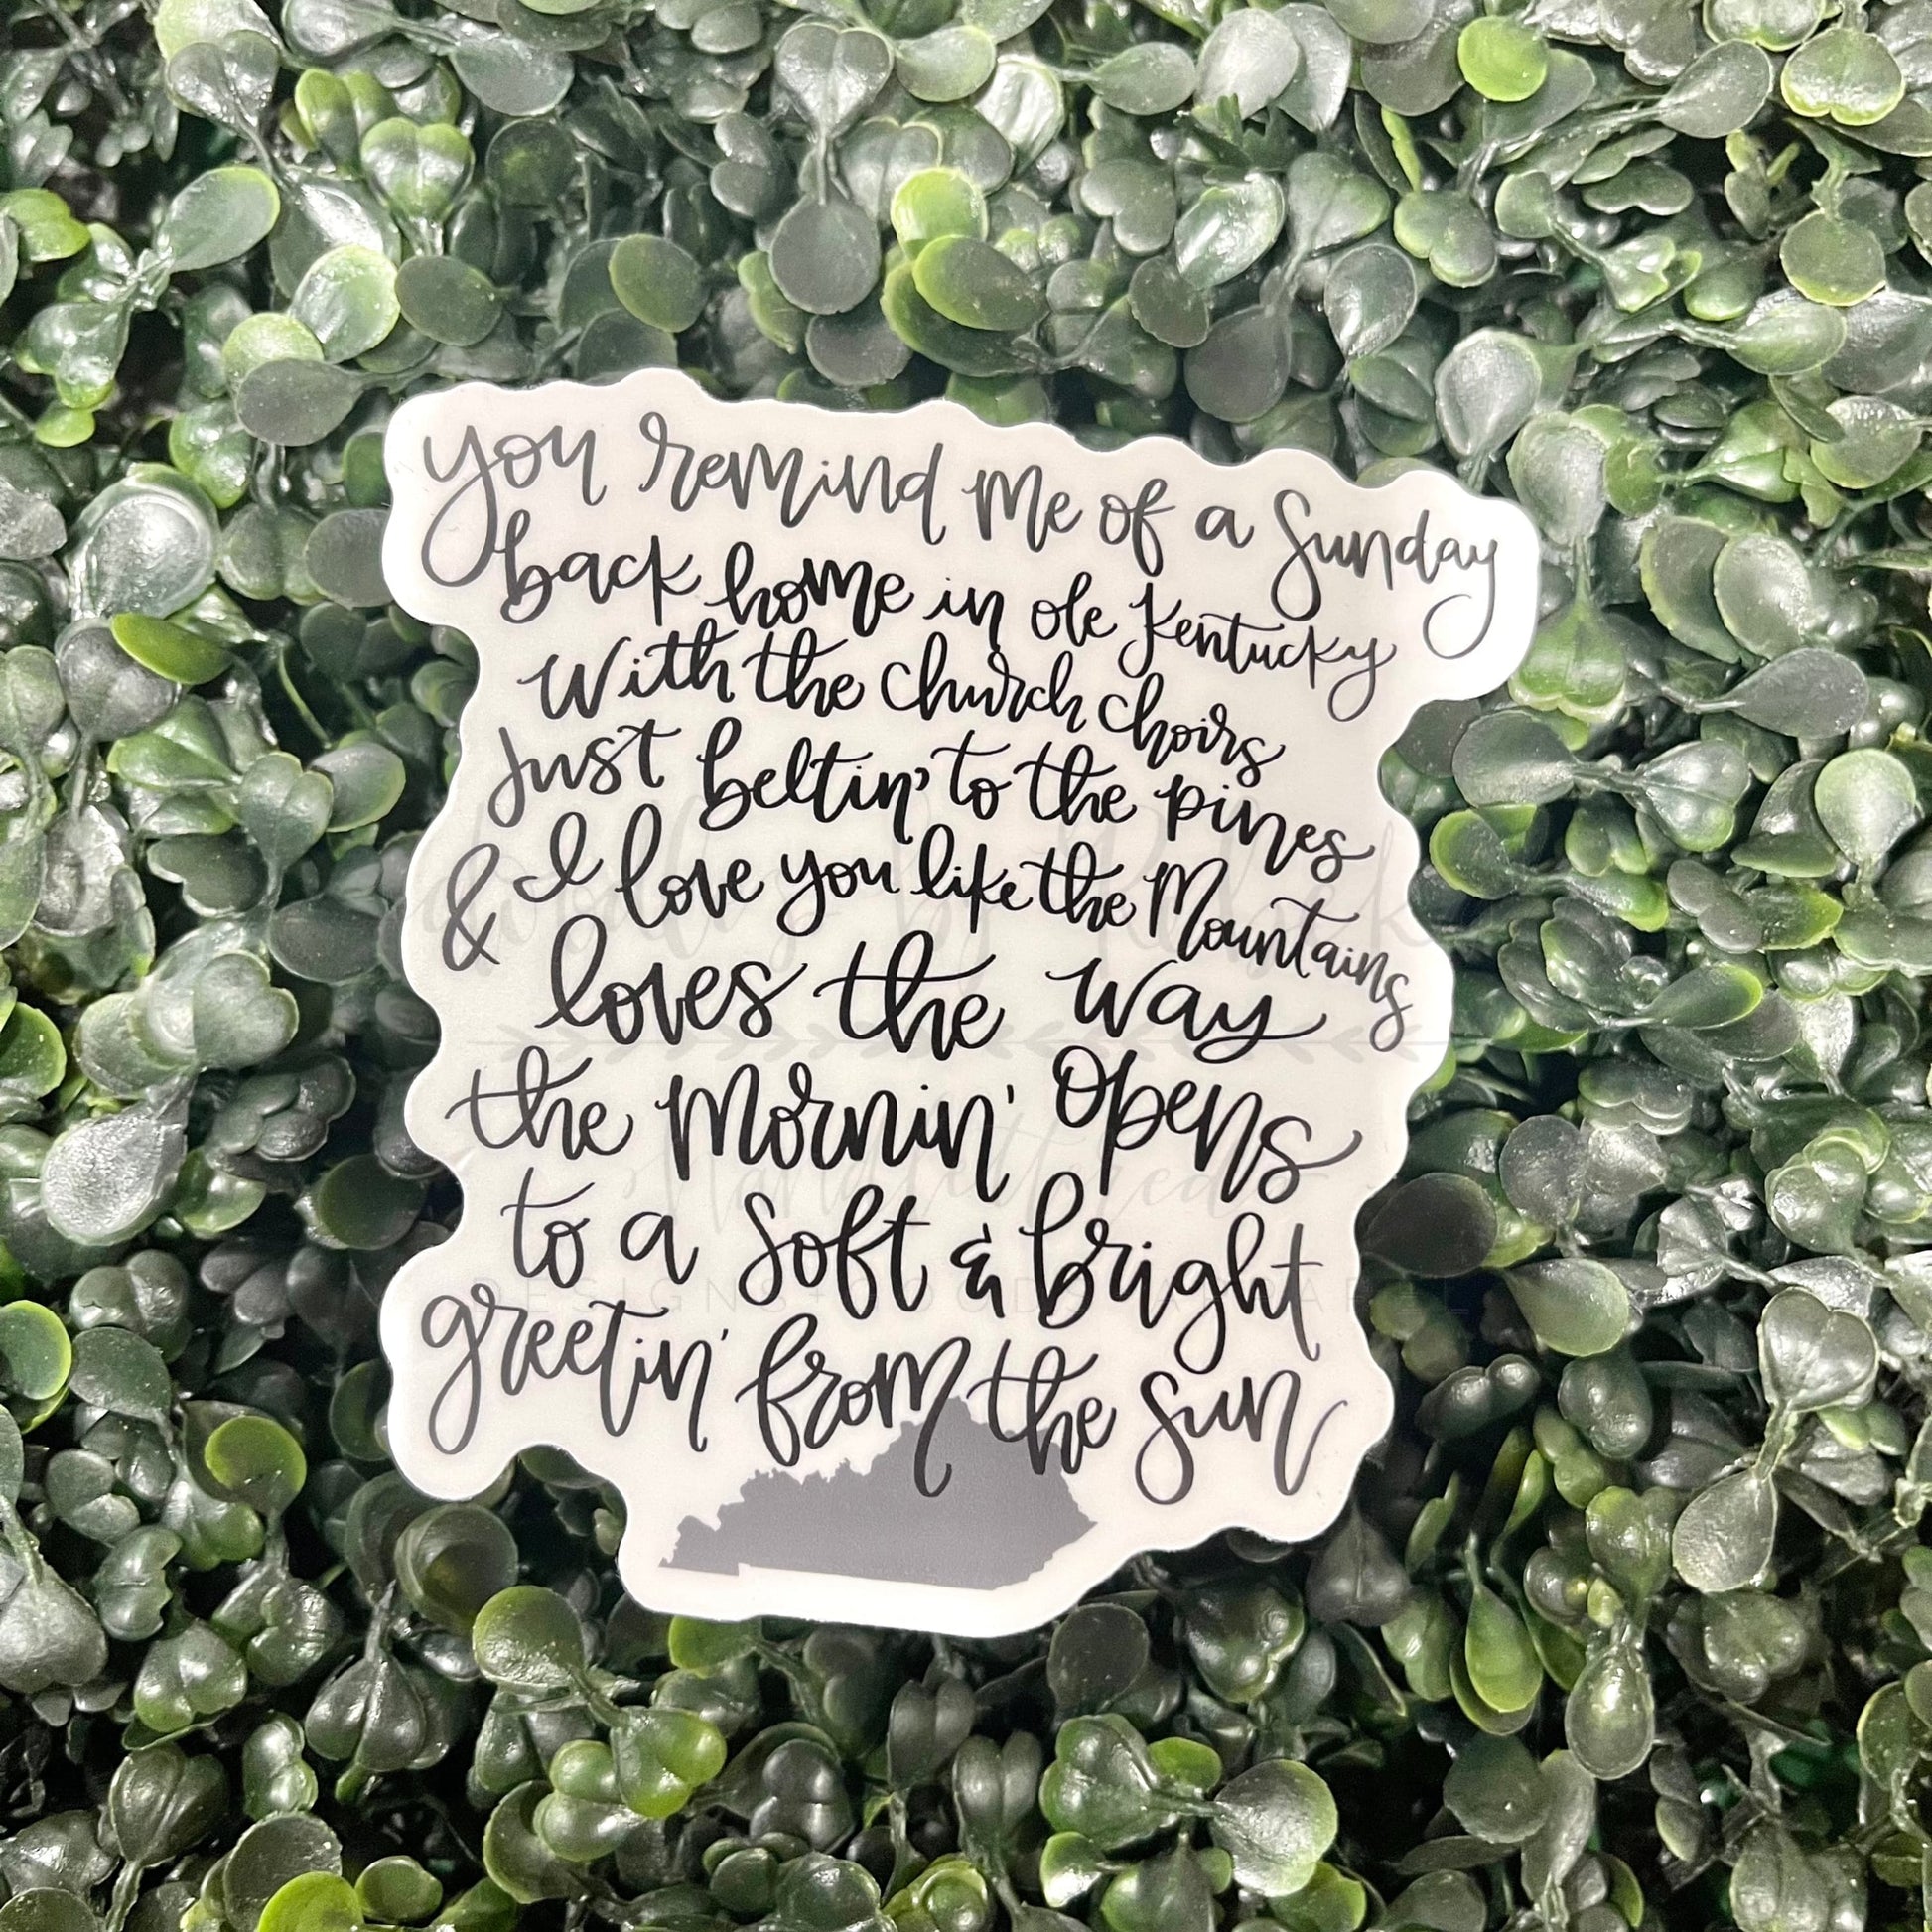 you remind me of a Sunday
back home in ole Kentucky
With the church choirs
Just beltin' to the pines
& I love you like the Mountains
loves the way
the Mornin' Opens
to a soft & bright
greetin' from the sun
doodles by
Handlettered
DESIGNS GOODS APPAREL